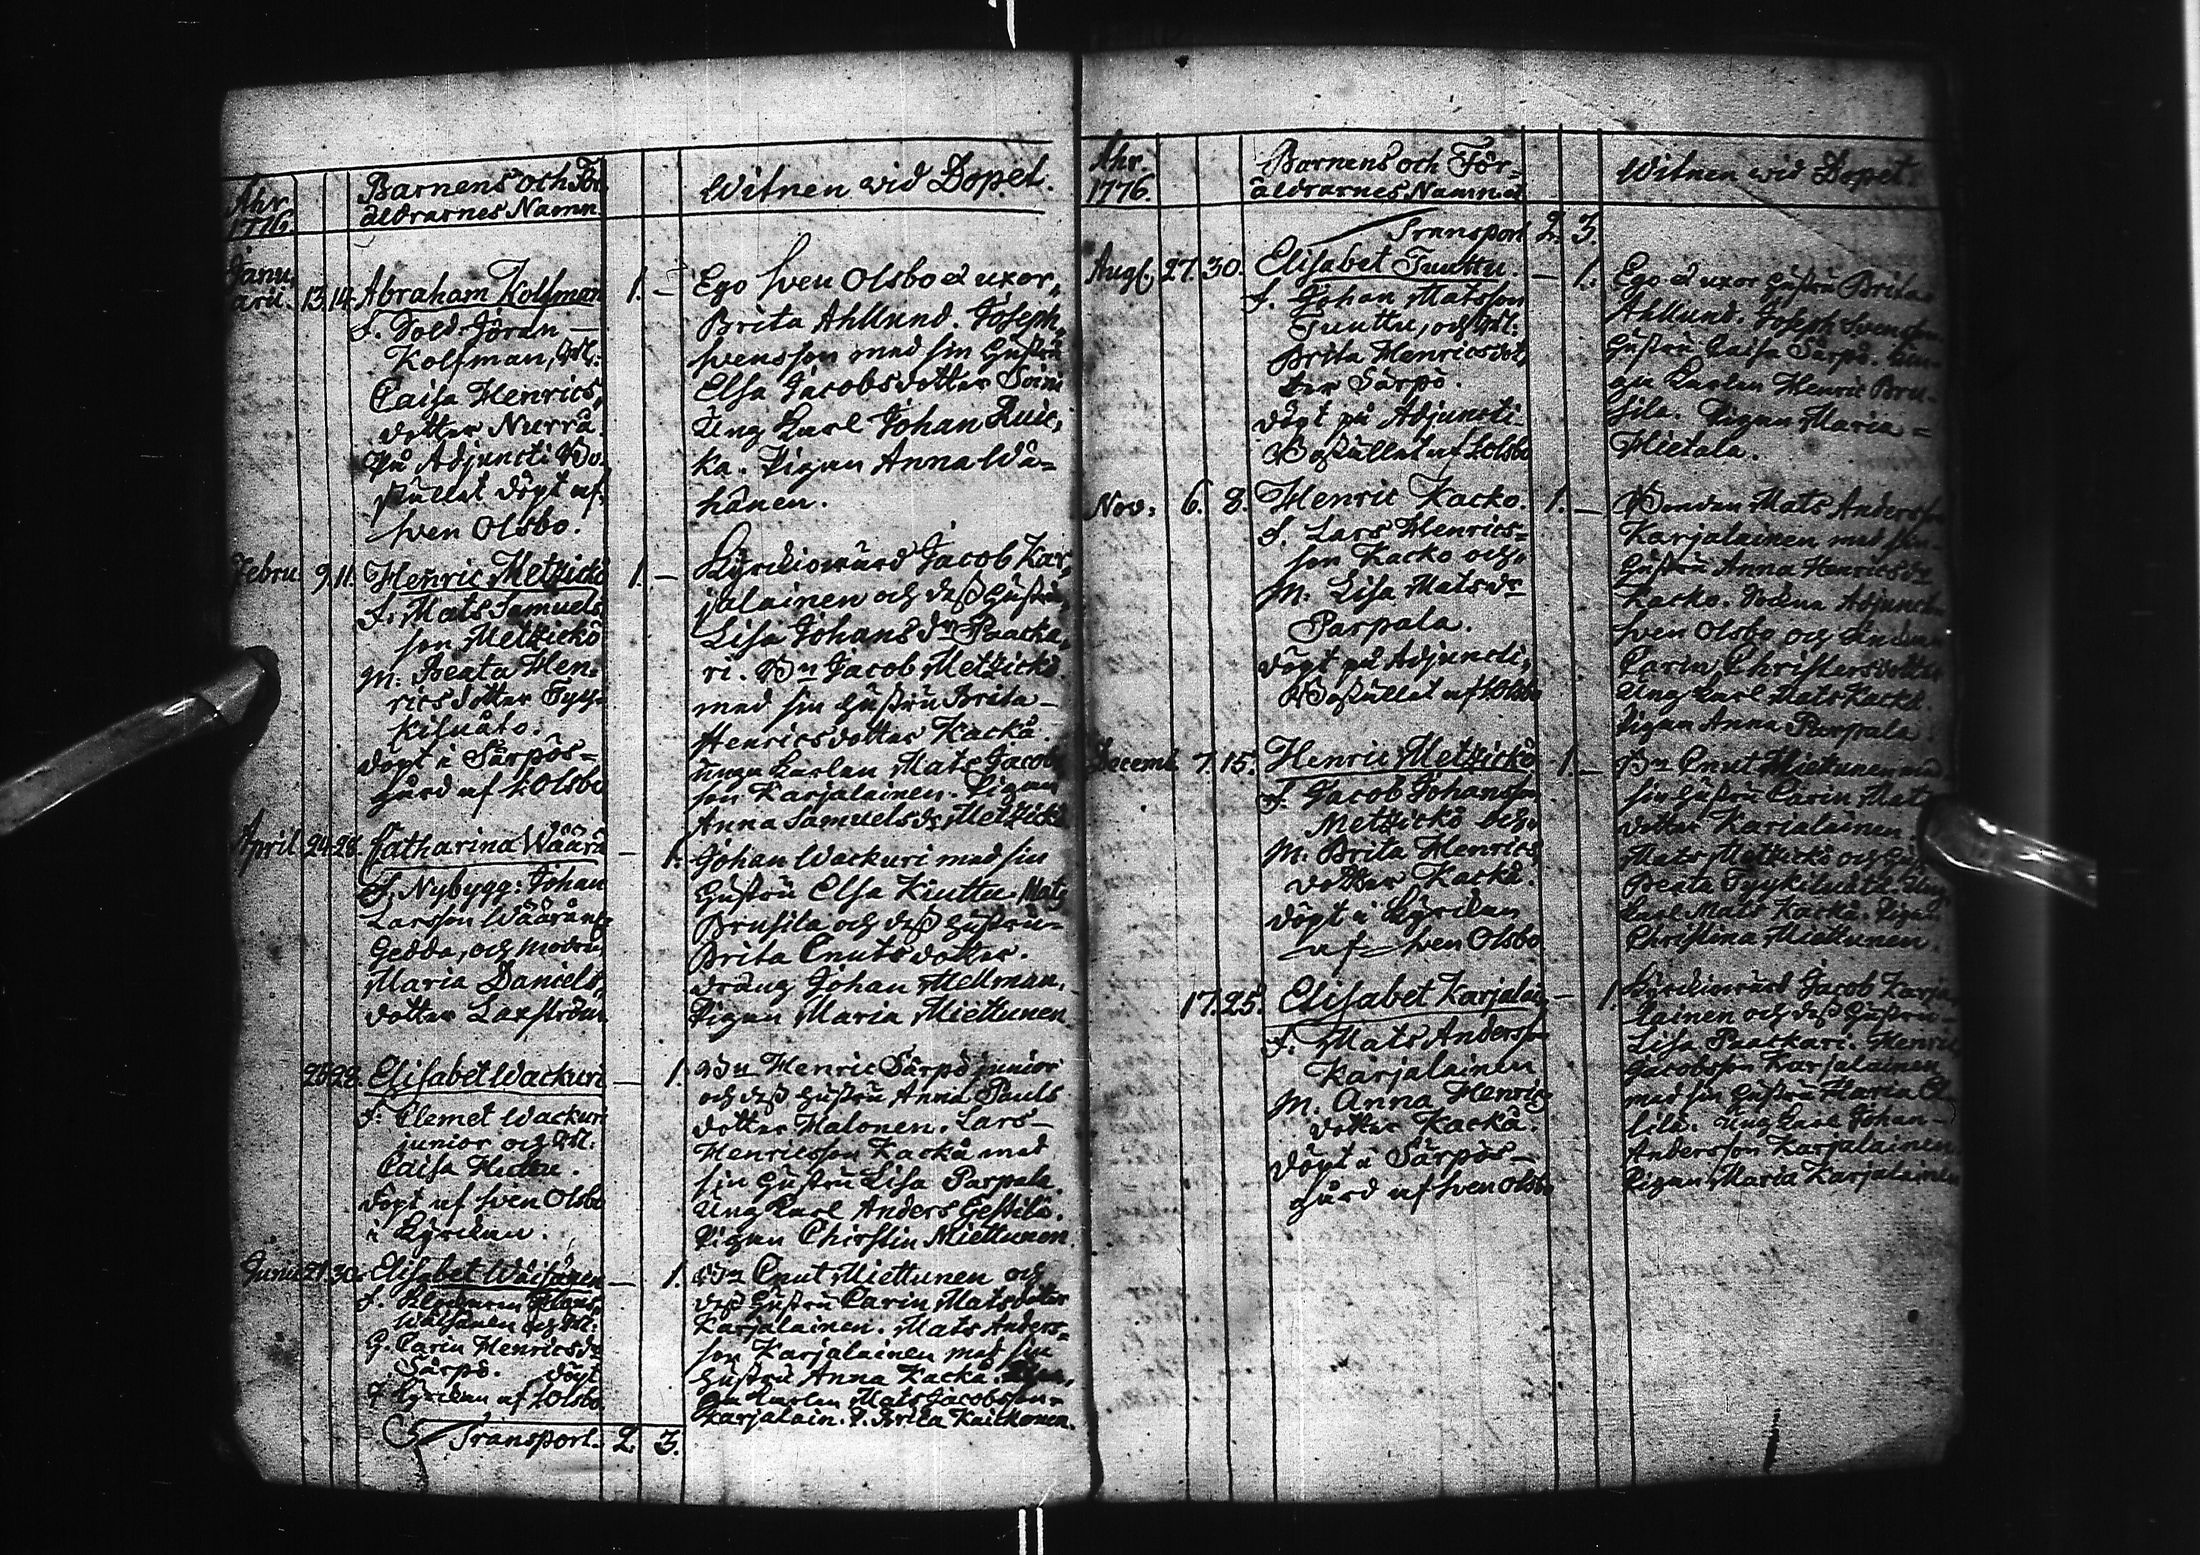 Åhr
1776.
Barnens och För
äldrarnes Namn
Witnen wid Dopet.
Janu
arii. 13. 14. Abraham Kolfman 1. –
F. Sold. Jöran –
Kolfman, M.
Caisa Henrics
dotter Nurrå
På Adjuncti Bo
stället döpt af
Swen Olsbo.
Ego Swen Olsbo et uxor,
Brita Ahllund. Joseph
Swensson med sin Hustru
Elsa Jacobsdotter Soini
Ung Karl Johan Ruic,
ka. Pigan Anna Wä=
hänen.
Febru. 9. 11. Henric Metzickö 1. –
F. Mats Samuels
son Metzickö
M. Beata Hen
ricsdotter Tyy
kiluåto.
döpt i Särpös=
gård af S. Olsbo
Kyrckiowärd Jacob Kar,
jalainen och dess Hustru
Lisa Johansdr Paacka,
ri. Bn Jacob Metzickö
med sin Hustru Brita –
Henricsdotter Kackå.
unga Karlen Mats Jacobs
son Karjalainen. Pigan
Anna Samuelsdr Metzickö
April 24. 28. Catharina Wäärä – 1.
F. Nybygg: Johan
Larsson Wäärä
Gedda, och modren
Maria Daniels,
dotter Laxström
Johan Wackuri med sin
Hustru Elsa Kiuttu. Mats
Brusila och dess Hustru=
Brita Cnutsdotter.
dräng Johan Mellman.
Pigan Maria Miettunen
28. Elisabet Wackuri – 1.
F. Clemet Wackuri
junior och M.
Caisa
döpt af Swen Olsbo
i Kyrckan.
Bn Henric Särpö junior
och dess Hustru Anna Pauls
dotter Halonen. Lars –
Henricsson Kackå med
sin Hustru Lisa Parpala.
Ung Karl Anders Gestilä.
Pigan Chirstin Miettunen.
Junii 30. Elisabet Wäisänen – 1.
F.
Wäisänen och M.
Carin Henricsdr
Särpö. döpt
i Kyrckan af S. Olsbo
Bn Cnut Miettunen och
dess Hustru Carin Matsdotter
Karjalainen. Mats Anders=
son Karjalainen med sin
Hustru Anna Kackå.
Karlen Mats Jacobsson
Karjalain. P. Brita Kaickonen.
Transport. 2. 3.
Åhr.
1776.
Barnens och För=
äldrarnes Namn
Witnen wid Dopet.
Transport 2. 3.
Aug. 27. 30. Elisabet Tuuttu. – 1.
F. Johan Matsson
Tuuttu, och M.
Brita Henricsdot
ter Särpö.
döpt på Adjuncti
Bostället af S. Olsbo
Ego et uxor Hustru Brita
Ahllund. Joseph Swensson
Hustru Caisa Särpö.
Karlen Henric Bru=
sila. Pigan Maria =
Mietala.
Nov: 6. 8. Henric Kacko. 1. –
F. Lars Henrics=
son Kacko och
M. Lisa Matsdr
Parpala.
döpt på Adjuncti,
Bostället af S. Olsbo
Bonden Mats Andersson
Karjalainen med sin
Hustru Anna Henricsdr
Kacko. Adjuncten
Swen Olsbo och
Carin Christersdotter
Ung Karl Mats Kackå.
Pigan Anna Parpala.
Decemb. 7. 15. Henric Metzickö 1. –
F. Jacob Johansson
Metzickö och
M. Brita Henrics
dotter Kackå.
döpt i Kyrckan
af Swen Olsbo
Bn Cnut Miettunen med
sin Hustru Carin Mats
dotter Karjalainen.
Mats Metzickö och
Beata Tyykiluåto. Ung
Karl Mats Kackå. Pigan
Christina Miettunen.
17. 25. Elisabet Karjalai, – 1
F. Mats Andersson
Karjalainen
M. Anna Henrics
dotter Kackå.
döpt i Särpös –
gård af Swen Olsbo
Kyrckiowärd Jacob Karja
lainen och dess Hustru –
Lisa Paackari. Henric
Jacobsson Karjalainen
med sin Hustru Maria
Ung Karl Johan –
Andersson Karjalainen
Pigan Maria Karjalainen